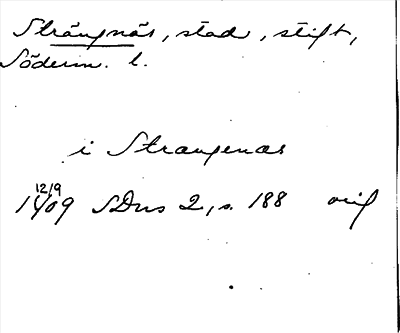 Strängnäs, stad, stift,
Söderm. l.
i Strangenæs
12/9
1409 SDns 2, s. 188 orig